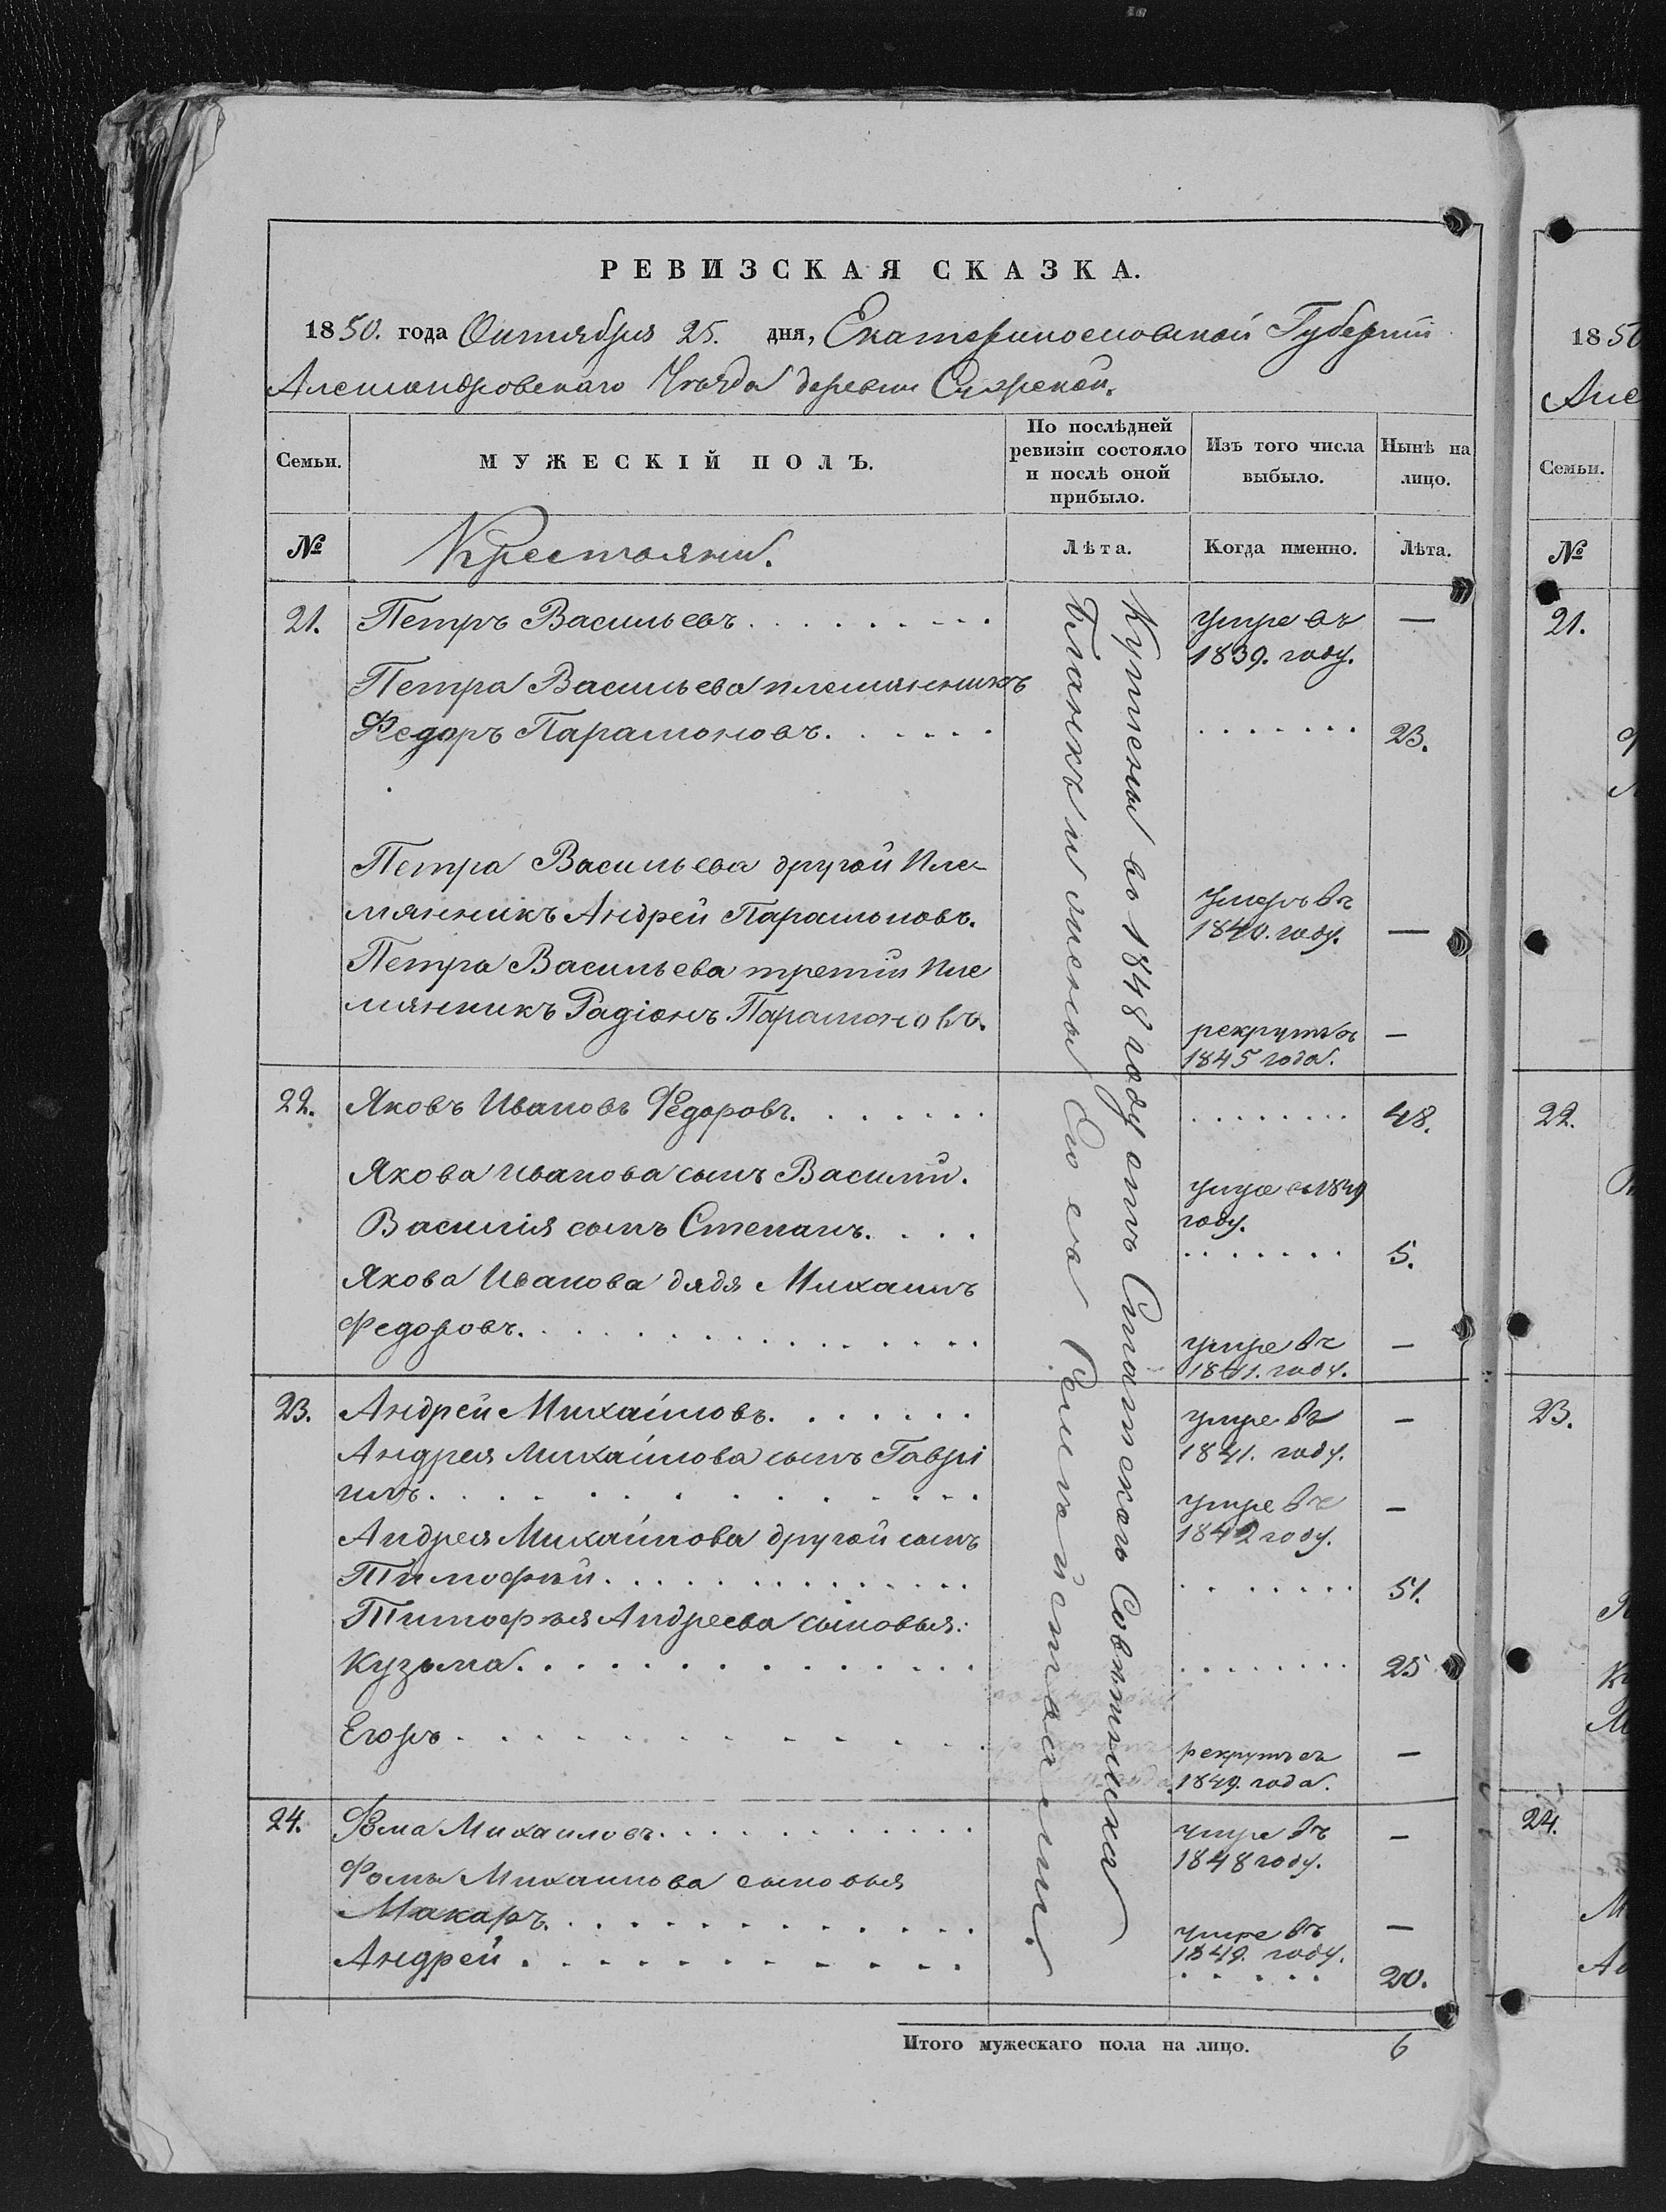 РЕВИЗСКАЯ СКАЗКА.
1850. года Октября 25. дня, Екатеринославской Губернии
Александровскаго Уѣзда деревни
Семьи.
МУЖЕСКІЙ ПОЛЪ.
По послѣдней ревизіи состояло и послѣ оной прибыло.
Изъ того числа выбыло.
Нынѣ на лицо.
№
Крестьяни.
Лѣта.
Когда именно.
Лѣта.
Куплены въ 1848 году отъ Статскаго Совѣтника
и жены Его
21. Петръ Васильевъ. умре въ 1839. году. —
Петра Васильева племянникъ
Федоръ Парамоновъ. 23.
Петра Васильева другой Пле-
мянникъ Андрей Парамоновъ. умеръ въ 1840. году. —
Петра Васильева третій Пле
мянникъ Радіонъ Парамоновъ. рекрутъ въ 1845 года. —
22. Яковъ Ивановъ Федоровъ. 48.
Якова Иванова сынъ Василій. умре въ 1849 году.
Василія сынъ Степанъ. 5.
Якова Иванова дядя Михаилъ
Федоровъ. умре въ 1841. году. —
23. Андрей Михайловъ. умре въ 1841. году. —
Андрея Михайлова сынъ Гаврі
илъ. умре въ 1842 году. —
Андрея Михайлова другой сынъ
Тимофѣй. 51.
Тимофѣя Андреева сыновья:
Кузьма. 25
Егоръ. рекрутъ съ 1849. года. —
24. Фома Михаиловъ. умре въ 1848 году. —
Фомы Михаилова сыновья
Макаръ. умре въ 1849. году. —
Андрей. 20.
Итого мужескаго пола на лицо. 6
1850
Але
Семьи.
№
21.
22.
23.
24.